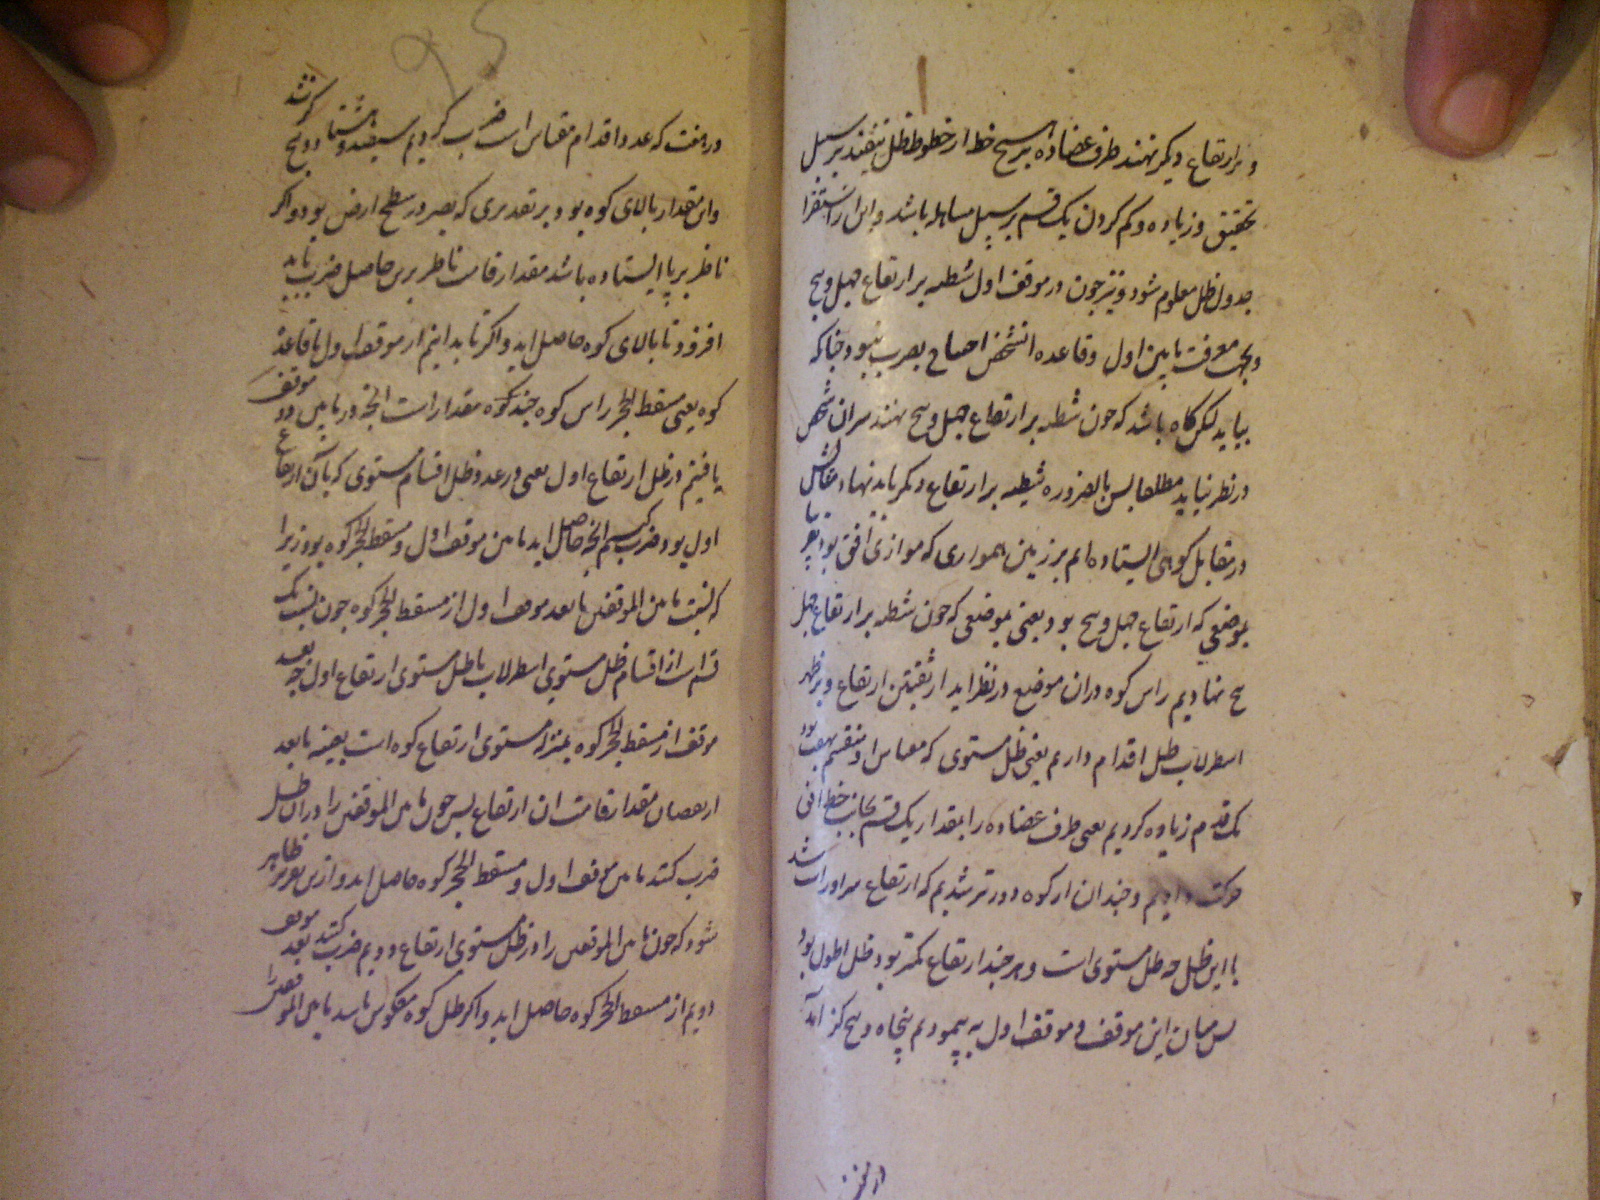 و بر ارتفاع دیگر نهند طرف عضاده بر هیچ خط از خطوط ظل نیفتد بر سبیل
تحقیق و زیاده و کم کردن یک قسم بر سبیل مساهله باشد و این را استقرا
جدول ظل معلوم شود و نیز چون در موقف اول شظیه بر ارتفاع چهل و پنج
و بجهت معرفت مابین اول و قاعده انشخص احتیاج بضرب نبود چنانکه
بیاید لیکن گاه باشد که چون شظیه بر ارتفاع چهل و پنج نهند سر آن شخص
در نظر نیاید مطلقا پس بالضروره شظیه بر ارتفاع دیگر باید نهاد مثالش
در مقابل کوهی ایستاده ایم بر زمین همواری که موازی افق بود
بموضعی که ارتفاع چهل و پنج بود یعنی بموضعی که چون شظیه بر ارتفاع چهل
پنج نهادیم راس کوه در آن موضع در نظر آید از ثقبتین ارتفاع و بر ظهر
اسطرلاب ظل اقدام داریم یعنی ظل مستوی که مقیاس او منقسم بهفت بود
یک قدم زیاده کردیم یعنی طرف عضاده را بمقدار یک قسم بجانب خط افق
حرکت دادیم و چندان از کوه دورتر شدیم که ارتفاع سر او راست شد
با این ظل چه ظل مستوی است و هر چند ارتفاع کمتر بود ظل اطول بود
پس میان این موقف و موقف اول به پیمودیم پنجاه و پنج گز آمد
در هفت که عدد اقدام مقیاس است ضرب کردیم سیصد و هشتاد و پنج گز شد
و این مقدار بالای کوه بود بر تقدیری که بصر در سطح ارض بود و اگر
ناظر بر پا ایستاده باشد مقدار قامت ناظر برین حاصل ضرب باید
افزود تا بالای کوه حاصل آید و اگر خواهیم که بدانیم از موقف اول تا قاعده
کوه یعنی مسقط الحجر راس کوه چند گز مقدار است آنچه در مابین دو موقف
یافتیم در ظل ارتفاع اول یعنی در عدد ظل اقسام مستوی که بآن ارتفاع
اول بود ضرب کنیم آنچه حاصل آید مابین موقف اول و مسقط الحجر کوه بود زیرا
که نسبت مابین الموقفین با بعد موقف اول از مسقط الحجر کوه چون نسبت یک
قسم است از اقسام ظل مستوی اسطرلاب با ظل مستوی ارتفاع اول چه بعد
موقف از مسقط الحجر کوه بمنزله مستوی ارتفاع کوه است بعینه یا بعد
از نقصان مقدار قامت از ارتفاع پس چون مابین الموقفین را در آن ظل
ضرب کنند مابین موقف اول و مسقط الحجر کوه حاصل آید و ازین تقریر ظاهر
شود که چون مابین الموقفین را در ظل مستوی ارتفاع دویم ضرب کنند بعد موقف
دویم از مسقط الحجر کوه حاصل آید و اگر ظل کوه معکوس باشد مابین الموقفین را